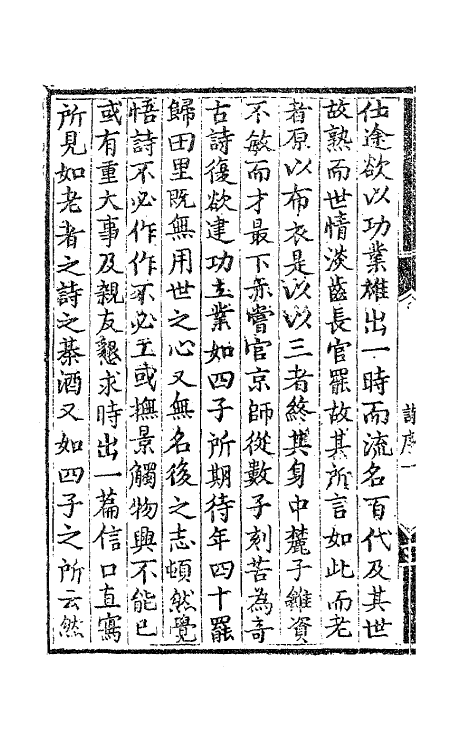 仕途欲以功業雄出一時而流名百代及其世
故熟而世情淡齒長官罷故其所言如此而老
者原以布衣是以以三者終其身中麓子雖資
不敏而才最下亦嘗官京師從數子刻苦為奇
古詩復欲建功立業如四子所期待年四十罷
歸田里既無用世之心又無名後之志頓然覺
悟詩不必作作不必工或撫景觸物興不能已
或有重大事及親友懇求時出一篇信口直寫
所見如老者之詩之棊酒又如四子之所云然
詩序一